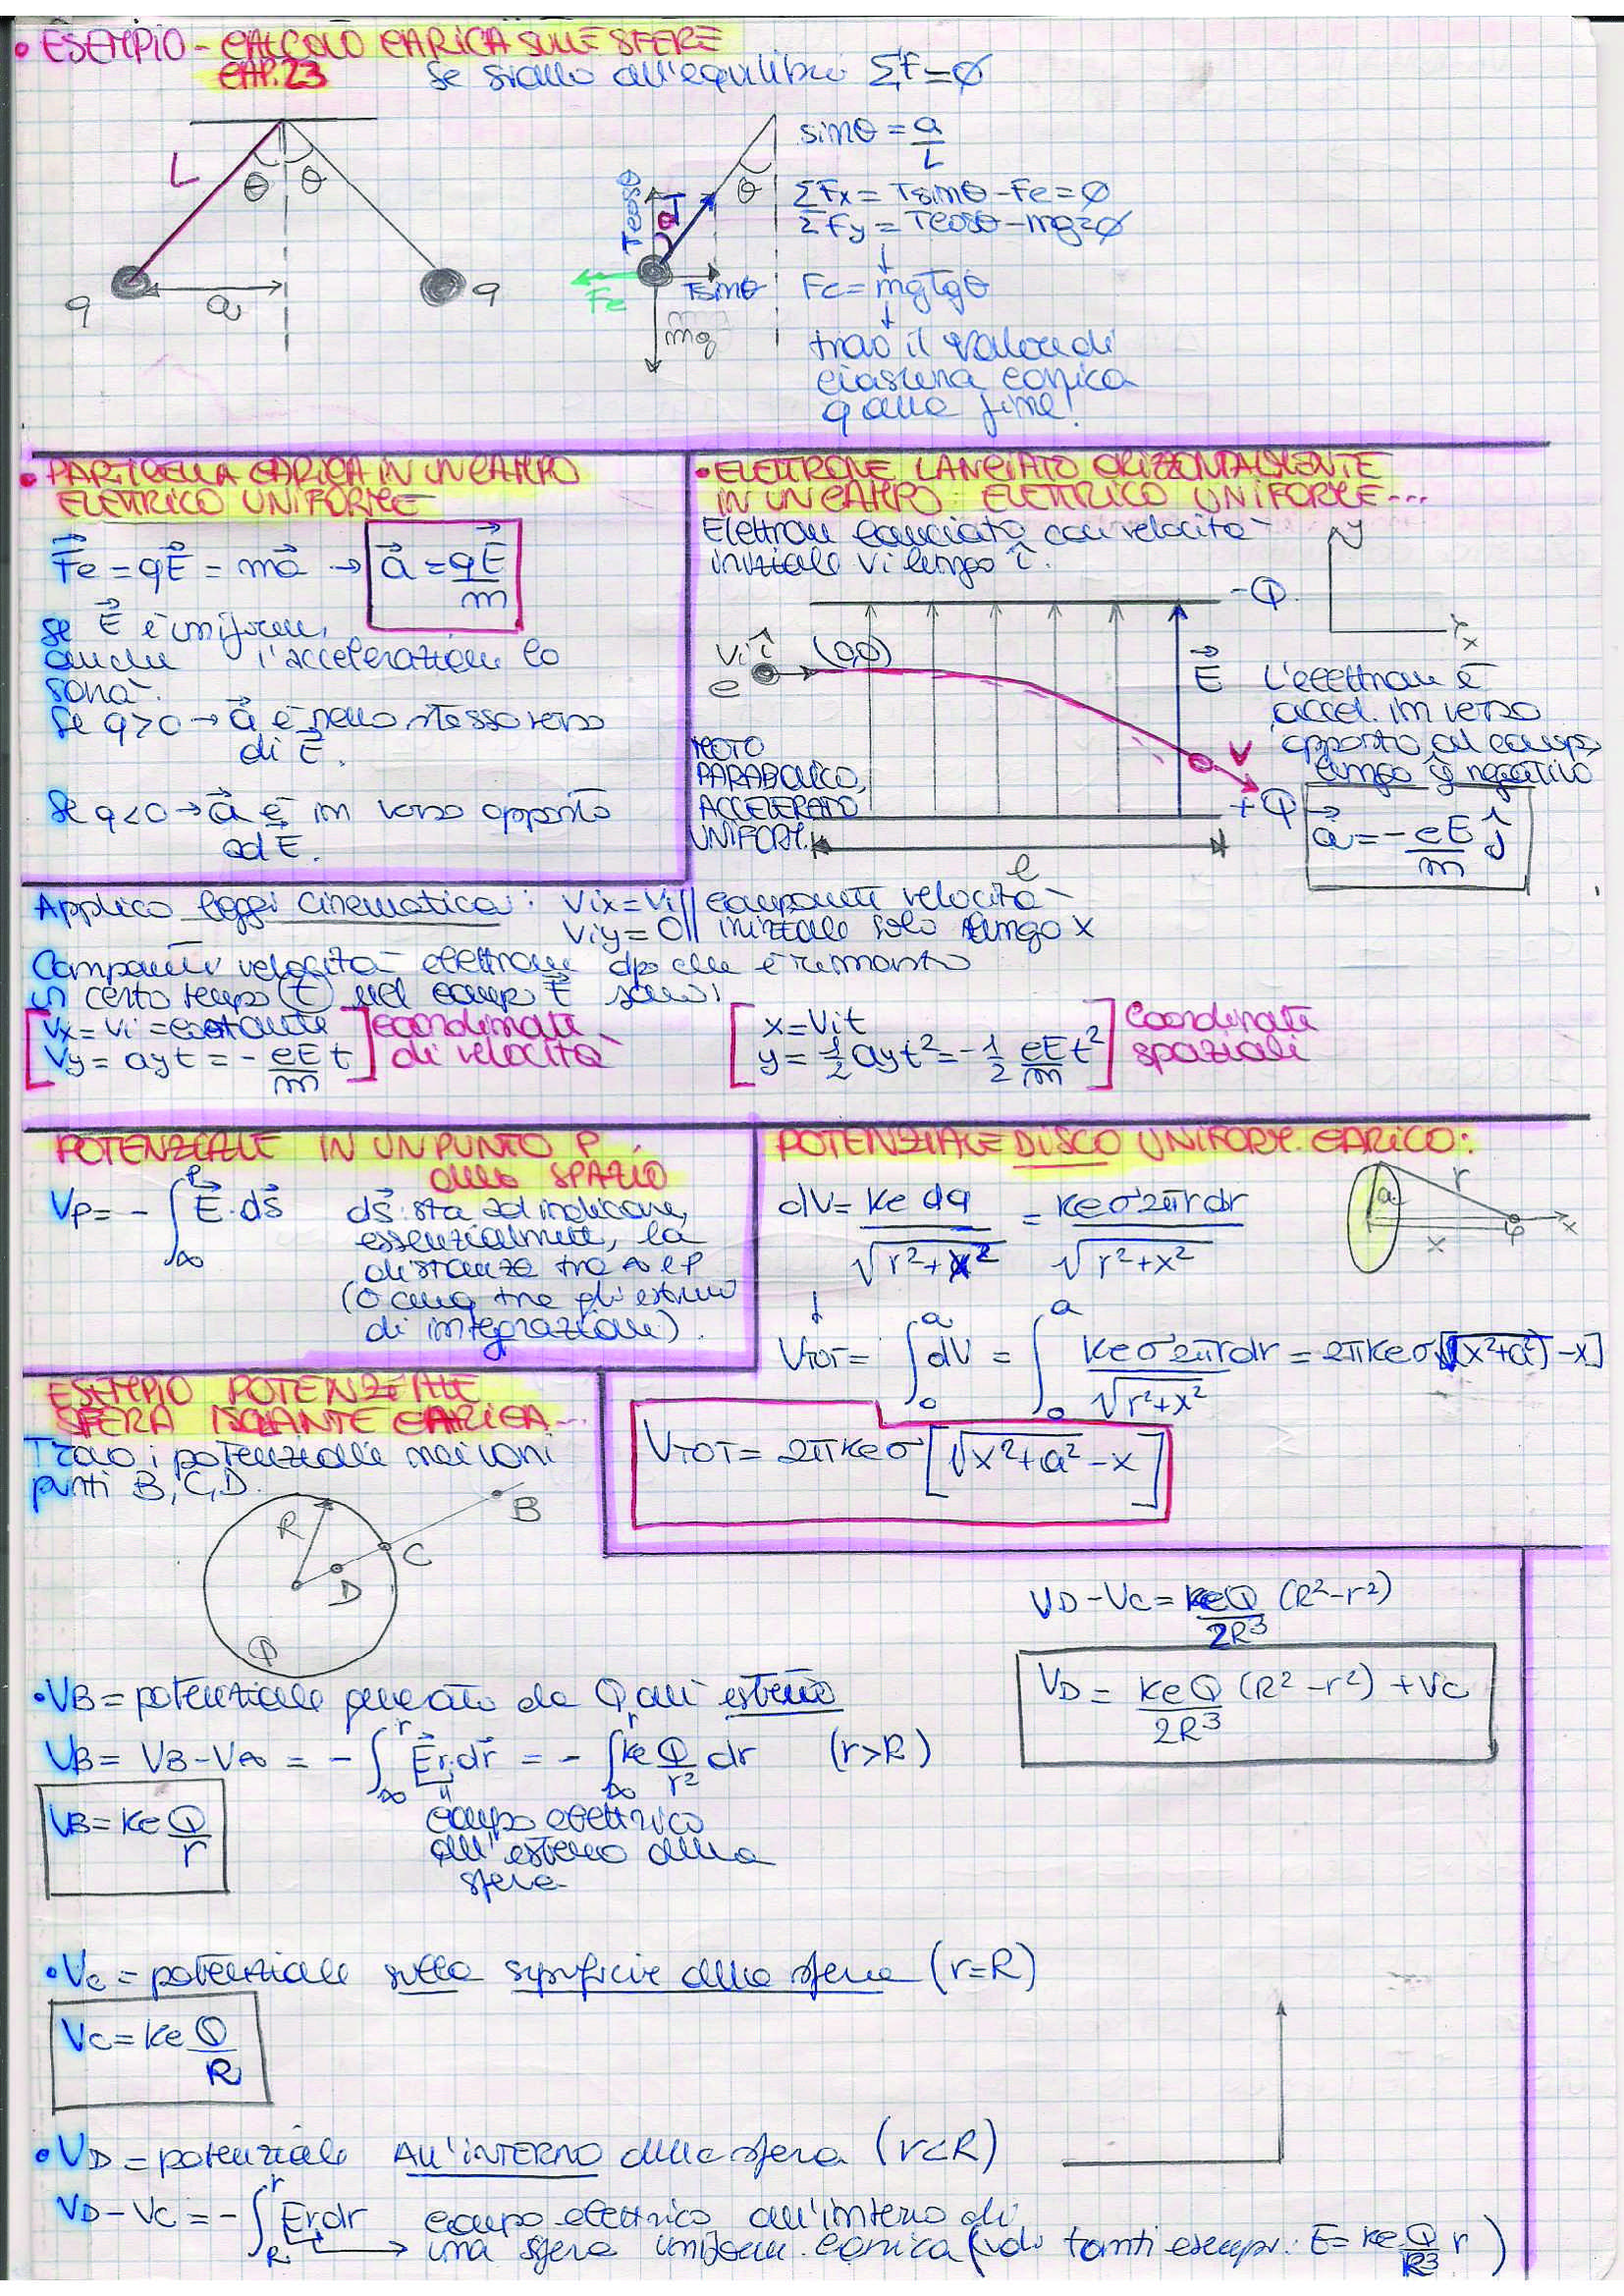 • ESEMPIO - CALCOLO CARICA SULLE SFERE
CAP.23 Se siamo all'equilibrio ΣF=∅
L θ θ
q a q
Tcosθ T θ θ
Fe Tsinθ
mg
sinθ = a/L
ΣFx = Tsinθ - Fe = ∅
ΣFy = Tcosθ - mg = ∅
↓
Fe = mgTgθ
↓
trovo il valore di
ciascuna carica
q alla fine!
• PARTICELLA CARICA IN UN CAMPO
ELETTRICO UNIFORME
F⃗e = qE⃗ = ma⃗ → a⃗ = qE⃗/m
Se E⃗ è uniforme,
anche l'accelerazione lo
sarà.
Se q>0 → a⃗ è nello stesso verso
di E⃗.
Se q<0 → a⃗ è in verso opposto
ad E⃗.
• ELETTRONE LANCIATO ORIZZONTALMENTE
IN UN CAMPO ELETTRICO UNIFORME...
Elettrone lanciato con velocità
iniziale Vi lungo î.
y
x
-Q
Vi î (0,0)
e
E⃗
V
+Q
l
MOTO
PARABOLICO,
ACCELERATO
UNIFORM.
L'elettrone è
accel. in verso
opposto al campo
lungo ŷ negativo
a⃗ = -eE/m ĵ
Applico leggi cinematica: Vix=Vi || componenti velocità
Viy=0 || iniziale solo lungo x
Componenti velocità elettrone dpo che è rimasto
un certo tempo (t) nel campo E⃗ sono:
[Vx = Vi = costante
Vy = ayt = -eE/m t] coordinate di velocità
[x = Vit
y = 1/2 ayt² = -1/2 eE/m t²] coordinate spaziali
POTENZIALE IN UN PUNTO P
dello SPAZIO
Vp = -∫∞^P E⃗·ds⃗
ds⃗ sta ad indicare,
essenzialmente, la
distanza tra ∞ e P
(o cmq tra gli estremi
di integrazione).
POTENZIALE DISCO UNIFORM. CARICO:
dV = ke dq/√r²+x² = keσ2πrdr/√r²+x²
a r x P x
↓
VTOT = ∫₀^a dV = ∫₀^a keσ2πrdr/√r²+x² = 2πkeσ[√(x²+a²) - x]
VTOT = 2πkeσ[√x²+a² - x]
ESEMPIO POTENZIALE
SFERA ISOLANTE CARICA...
Trovo i potenziali nei vari
punti B, C, D.
R D C B
Q
• VB = potenziale generato da Q all'esterno
VB = VB - V∞ = -∫∞^r E⃗r·dr⃗ = -∫∞^r ke Q/r² dr (r>R)
campo elettrico
all'esterno della
sfera
VB = ke Q/r
VD - VC = keQ/2R³ (R²-r²)
VD = keQ/2R³ (R²-r²) + VC
• Vc = potenziale sulla superficie della sfera (r=R)
Vc = ke Q/R
• VD = potenziale ALL'INTERNO della sfera (r<R)
VD - VC = -∫R^r Er dr campo elettrico all'interno di
→ una sfera uniform. carica (vedi tanti esempi: E = ke Q/R³ r)